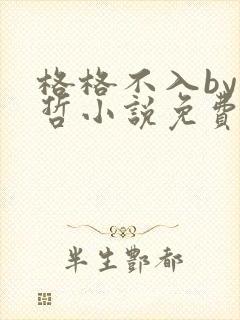 格格不入by
哲小說免費
半生酆都